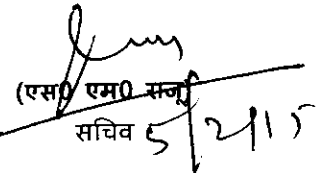 (एस0 एम0 सजू)
सचिव
5/2/15